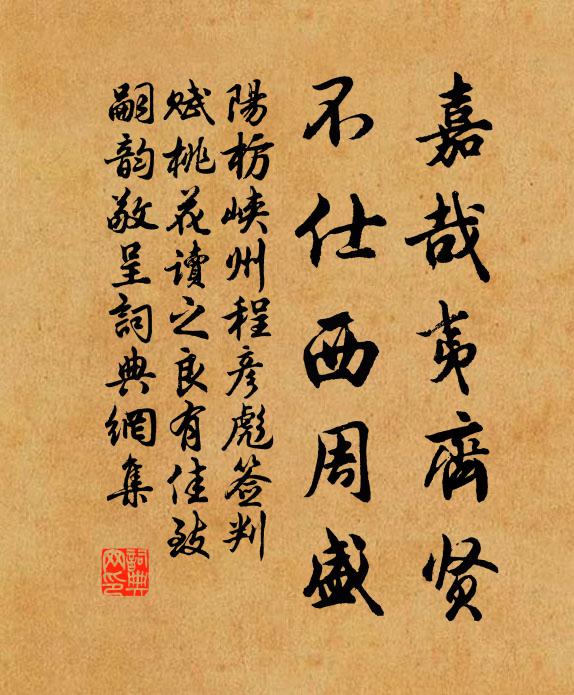 嘉哉夷齊贤
不仕西周盛
陽枋峡州程彦彪签判
赋桃花读之良有佳致
嗣韵敬呈詞典網集
詞典网印